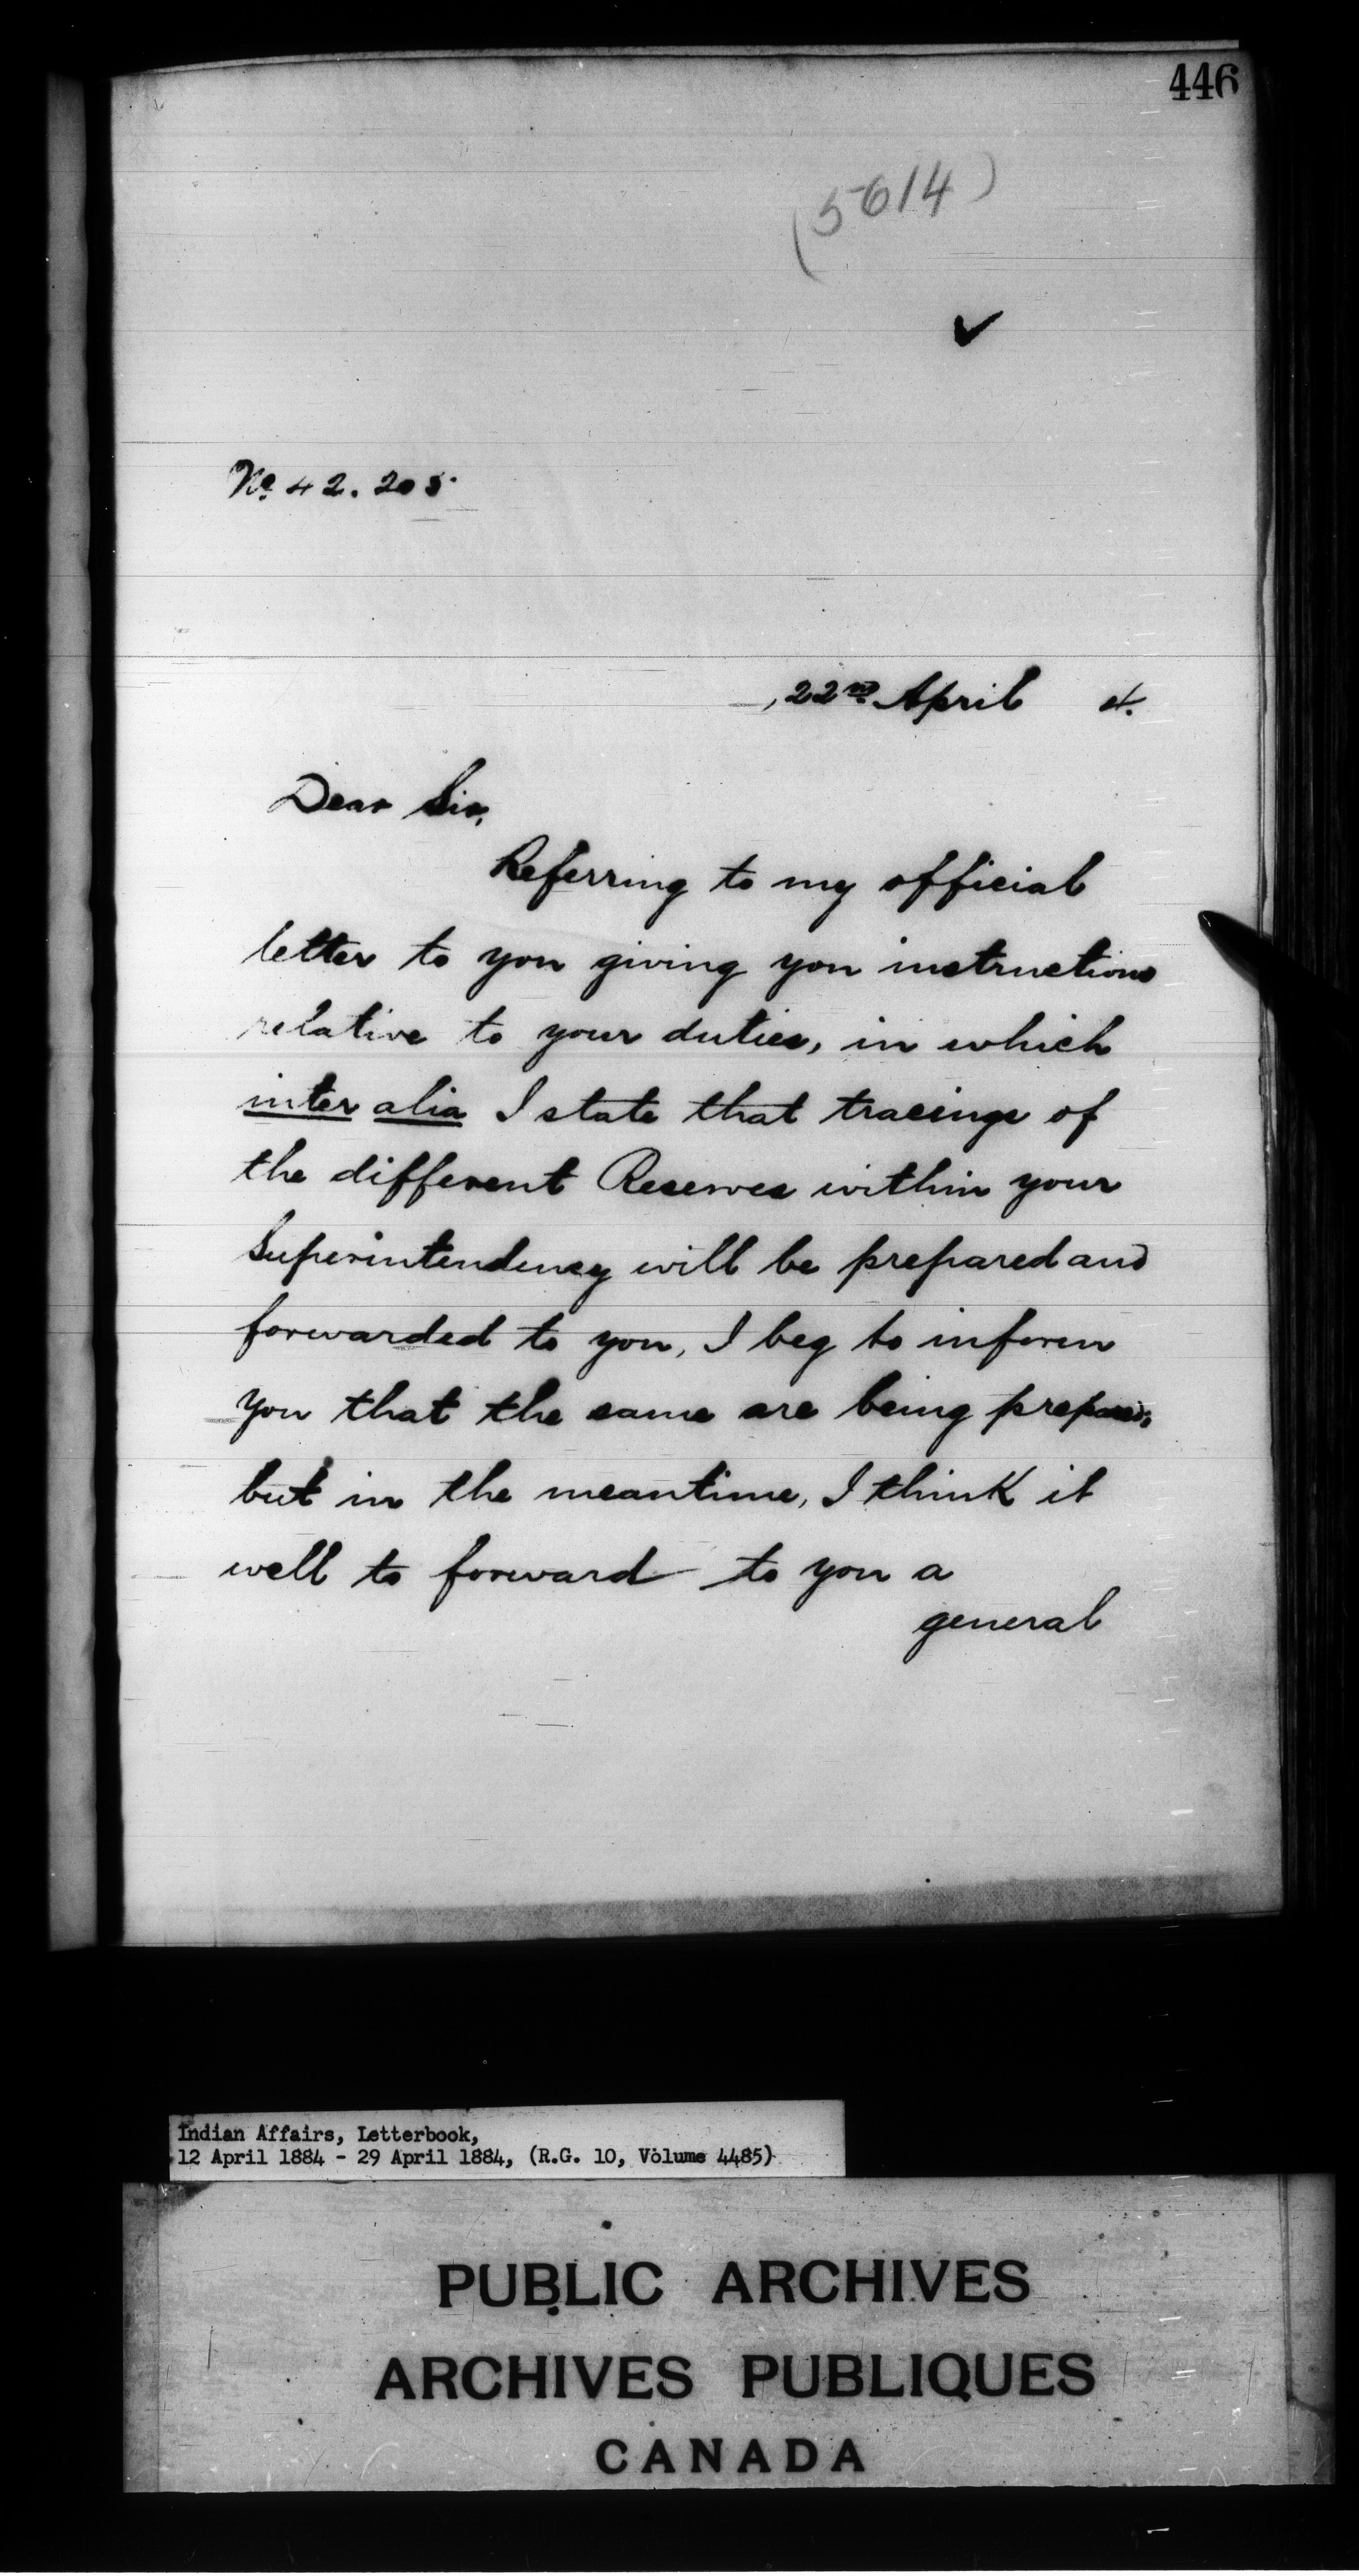 446
(5614)
✓
No. 42.205.
, 22nd April 4.
Dear Sir,
Referring to my official
letter to you giving you instructions
relative to your duties, in which
inter alia I state that tracings of
the different Reserves within your
Superintendency will be prepared and
forwarded to you, I beg to inform
you that the same are being prepared;
but in the meantime, I think it
well to forward to you a
general
Indian Affairs, Letterbook,
12 April 1884 - 29 April 1884, (R.G. 10, Volume 4485)
PUBLIC ARCHIVES
ARCHIVES PUBLIQUES
CANADA